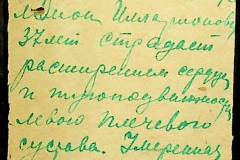 37 лет страдает
расширением сердца
и тугоподвижностью
левого плечевого
сустава. Умеренная